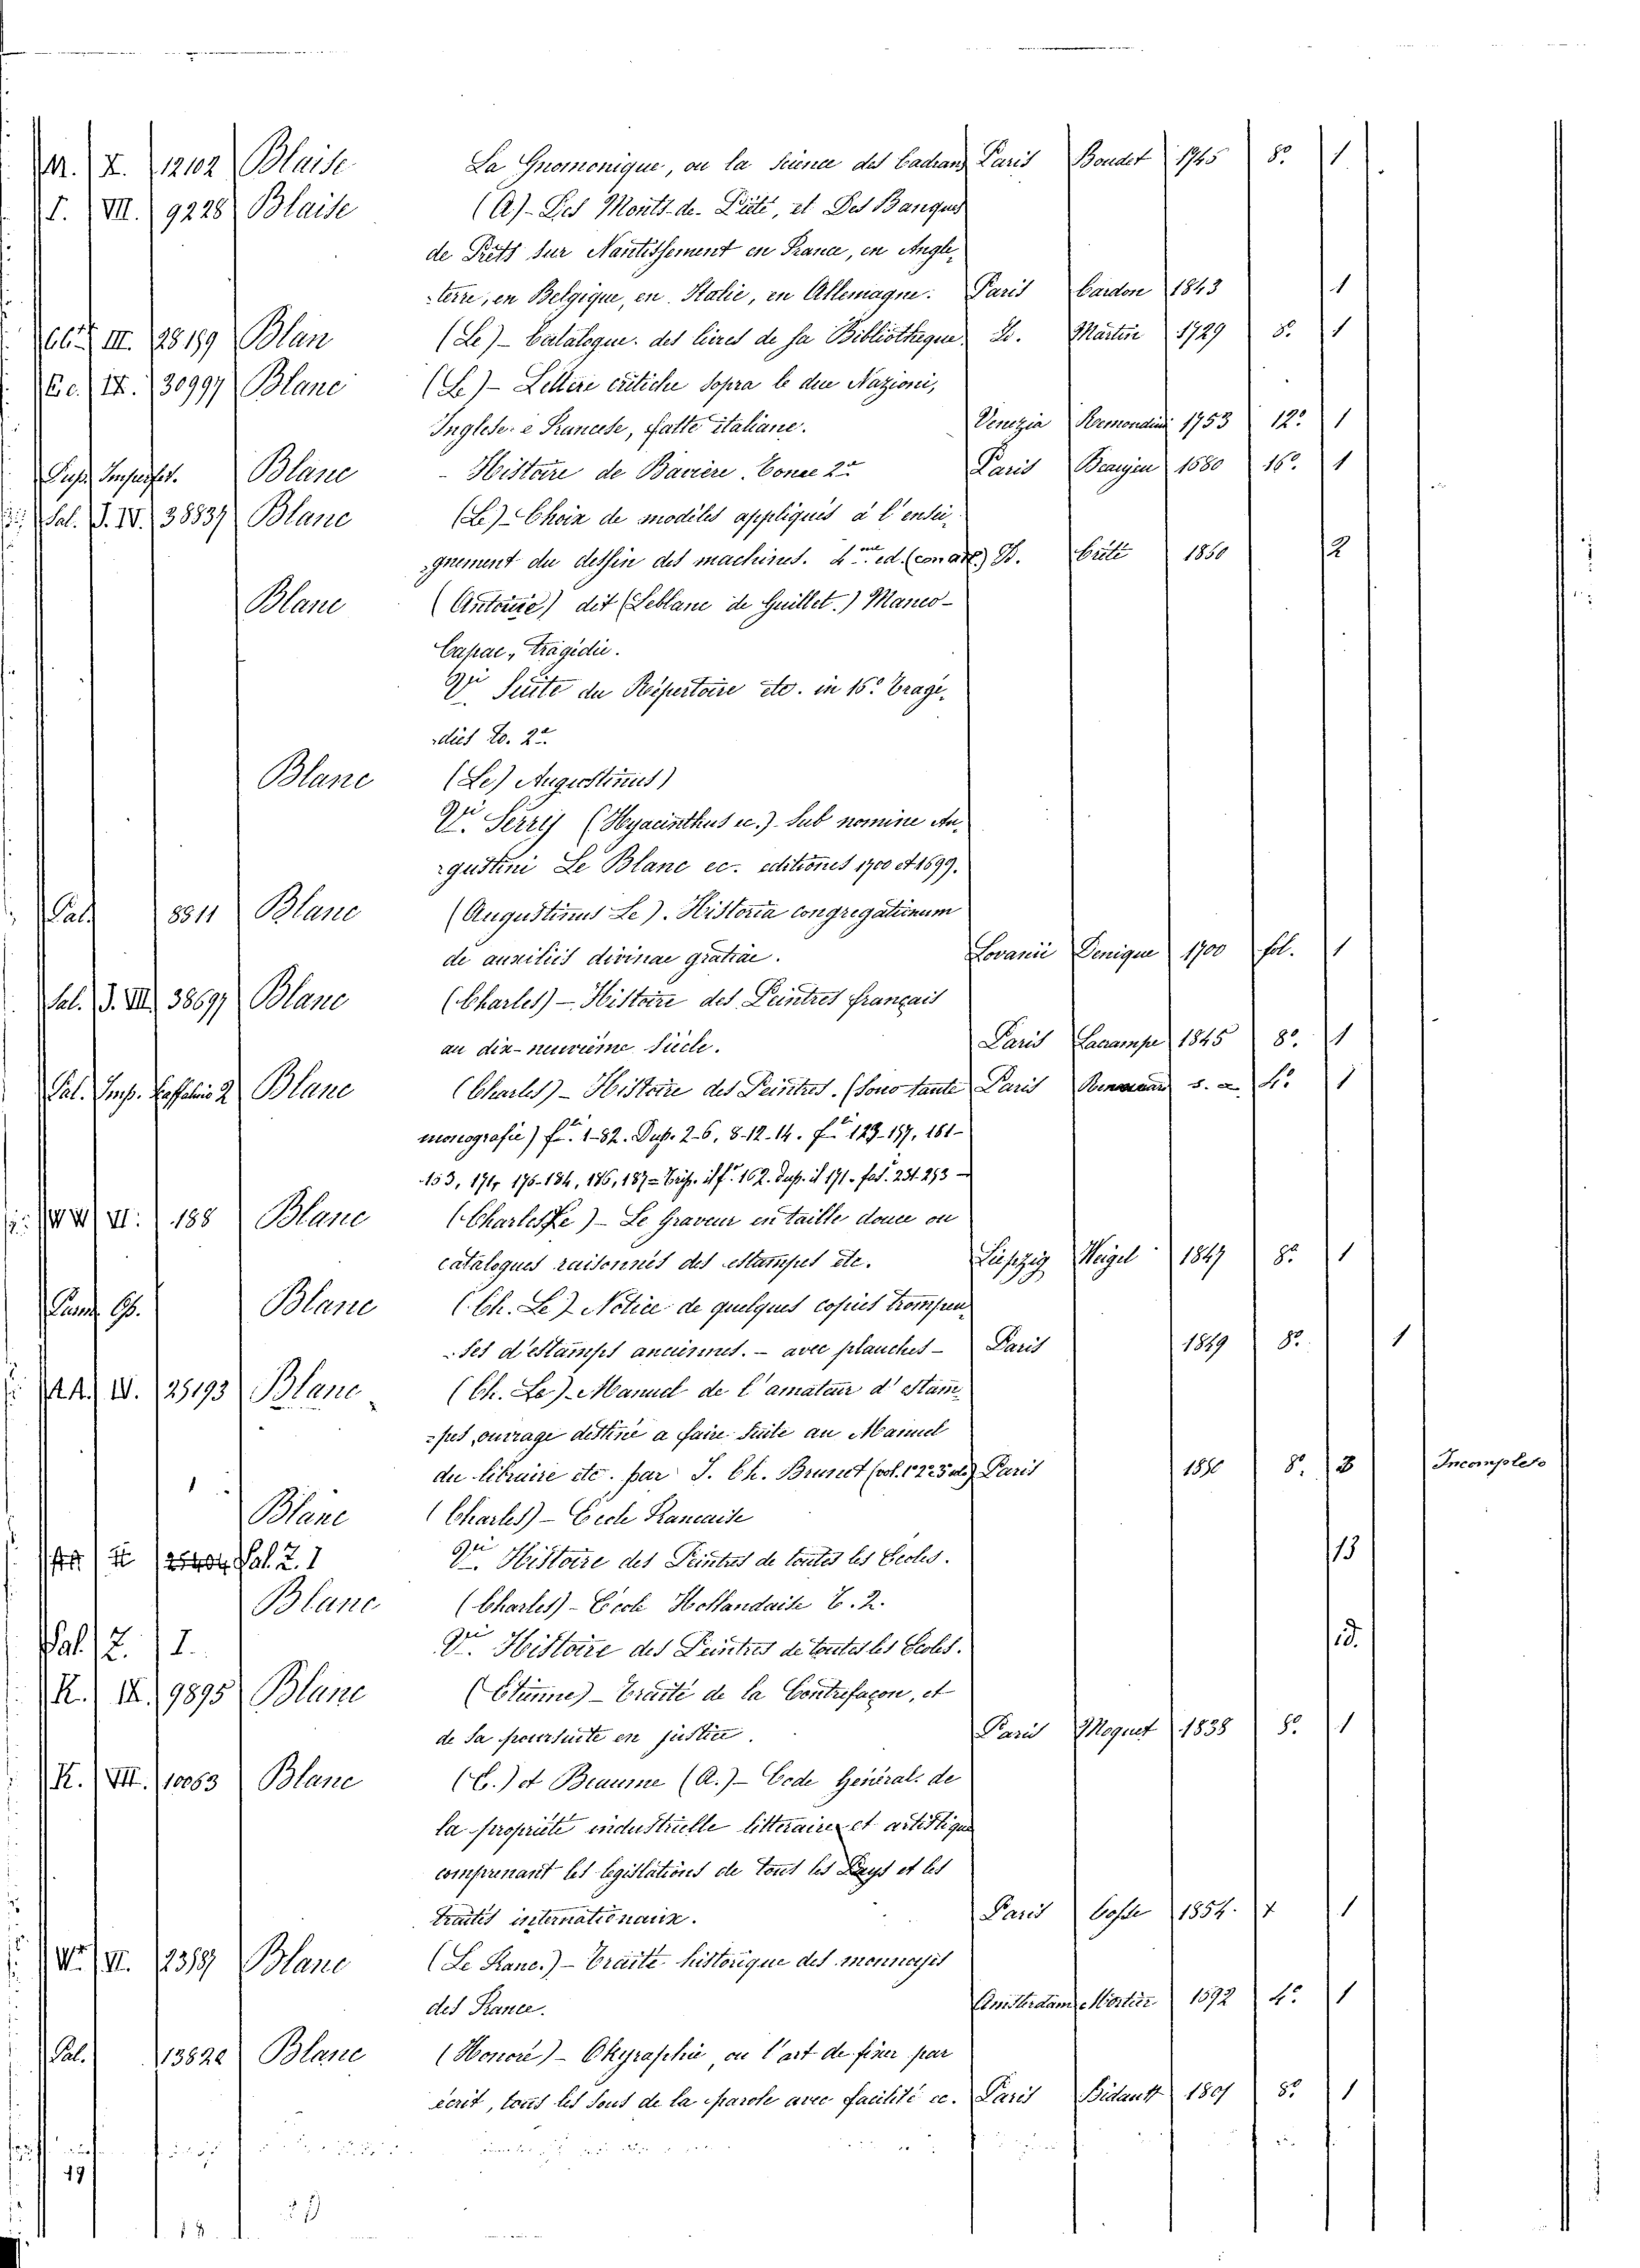 M. X. 12102 Blaise La Gnomonique, ou la Science des Cadrans Paris Boudet 1745 8º 1
I. VII. 9228 Blaise (A)- Des Monts-de-Piété, et Des Banques
de Prêts sur Nantissement en France, en Angle-
-terre, en Belgique, en Italie, en Allemagne. Paris Cardon 1843 1
III. 28189 Blan (Le)- Catalogue des livres de sa Bibliotheque Martin 1729 8º 1
IX. 30997 Blanc (Le)- Lettere critiche sopra le due Nazioni,
Inglese e Francese, fatte italiane. Venezia Remondini 1753 12º 1
Blanc - Histoire de Bavière. Tome 2º Paris 1680 16º 1
Sal. J. IV. 38837 Blanc (Le)- Choix de modèles appliqués à l'ensei-
-gnement du dessin des machines. 4me ed. (con atl.) 1860 2
Blanc (Antoine) dit (Leblanc de Guillet.) Manco-
Capac, tragédie.
Vi Suite du Répertoire etc. in 16º Tragé-
-dies To. 2º
Blanc (Le) Augustinus)
Vi. Serry (Hyacinthus ec.) Sub nomine Au-
-gustini Le Blanc ec. editiones 1700 et 1699.
Pal. 8811 Blanc (Augustinus Le). Historia congregationum
de auxiliis divinae gratiae. Lovanii Denique 1700 fol. 1
Sal. J. VIII 38697 Blanc (Charles)- Histoire des Peintres français
au dix-neuvième siècle. Paris Lacrampe 1845 8º 1
Blanc (Charles)- Histoire des Peintres. (Sono tante Paris s. a. 4º 1
monografie) fi. 1-82. Dup. 2-6, 8-12-14. fi 123-157, 161-
-153, 171, 176-184, 186, 187= il fº 162. dup. il 171- fas. 231-253-
VI. 188 Blanc (Charles Le)- Le Graveur en taille douce ou
catalogues raisonnés des estampes etc. Leipzig Weigel 1847 8º 1
Blanc (Ch. Le) Notice de quelques copies trompeu-
-ses d'estampes anciennes. - avec planches- Paris 1849 8º 1
A.A. IV. 25193 Blanc (Ch. Le)- Manuel de l'amateur d'estam-
-pes, ouvrage destiné a faire suite au Manuel
du libraire etc. par J. Ch. Brunet Paris 1850 8º 3 Incompleto
1
Blanc (Charles)- Ecole Francaise
Sal. Z. I Vi. Histoire des Peintres de toutes les Ecoles. 13
Blanc (Charles)- Ecole Hollandaise T. 2.
Sal. Z. I. Vi. Histoire des Peintres de toutes les Ecoles. id.
R. IX. 9895 Blanc (Etienne)- Traité de la Contrefaçon, et
de sa poursuite en justice. Paris Moquet 1838 8º 1
K. VII. 10063 Blanc (E.) et Beaume (A.)- Code Général de
la propriété industrielle litteraire et artistique
comprenant les legislations de tous les Pays et les
traités internationaux. Paris Cosse 1854. 1
VI. 2389 Blanc (Le Franc.)- Traité historique des monnayes
des France. Amsterdam Mortier 1692 4º 1
Pal. 13822 Blanc (Honoré)- Okygraphie, ou l'art de fixer par
ecrit, tous les sons de la parole avec facilité ec. Paris Bidault 1801 8º 1
19
18